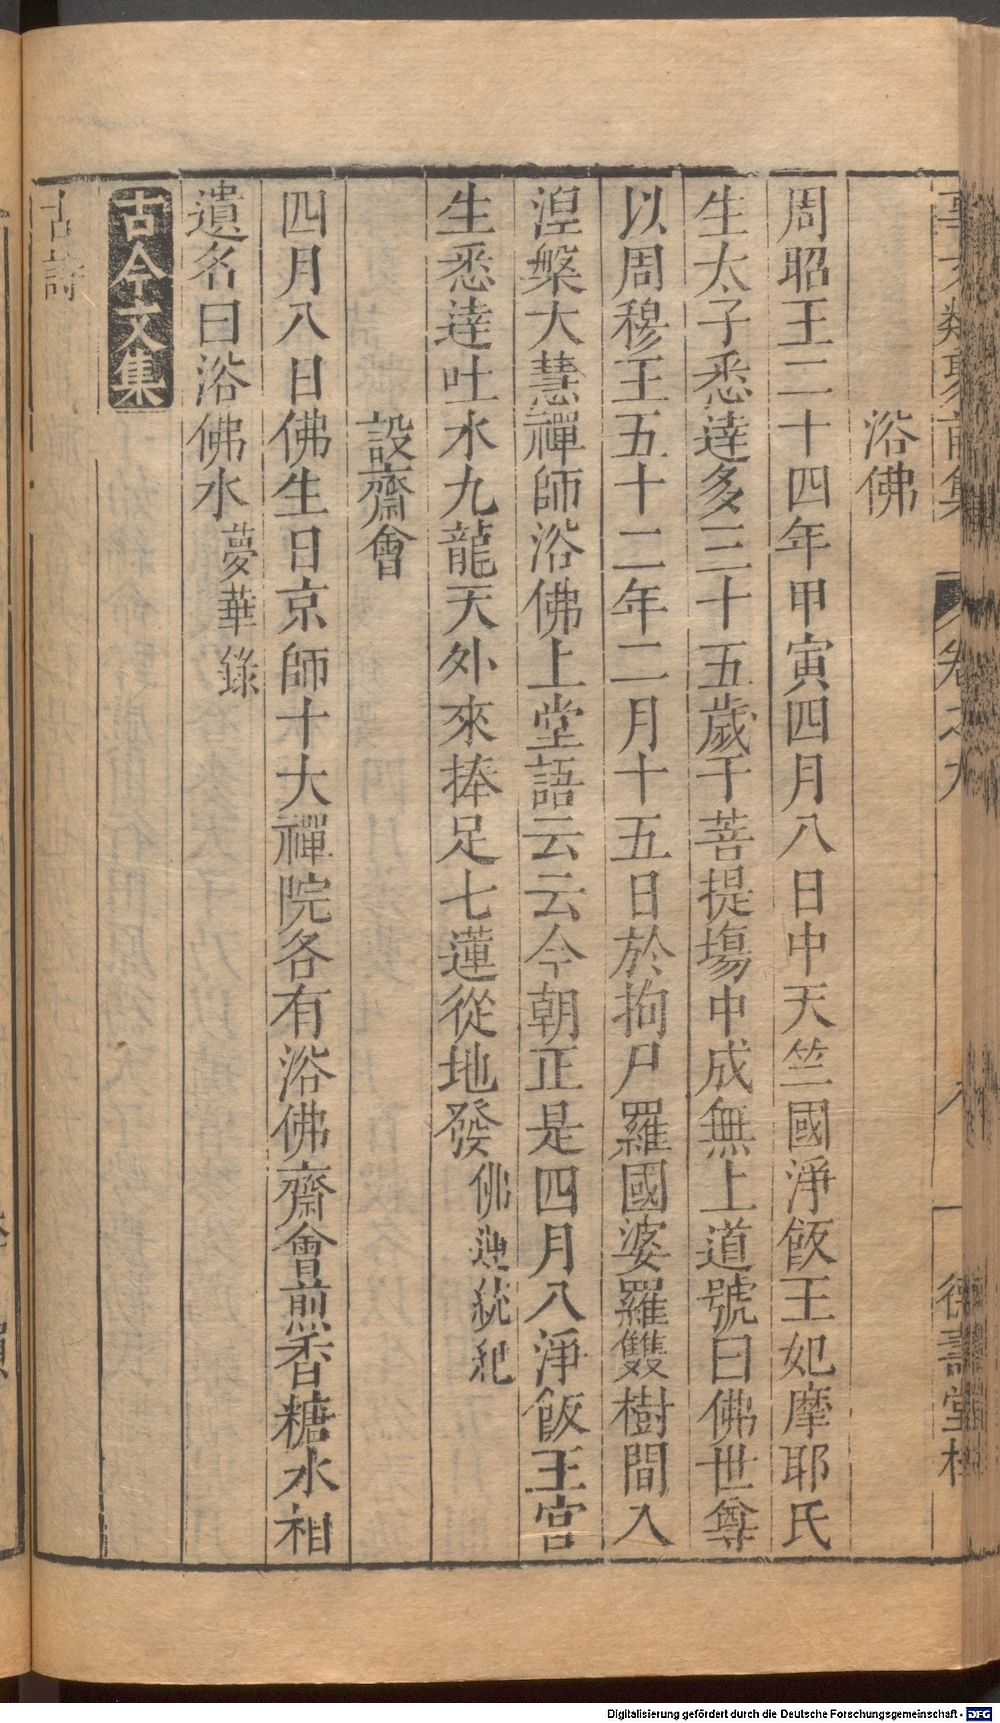 事文類聚前集 卷之九 八 德壽堂梓
浴佛
周昭王二十四年甲寅四月八日中天竺國淨飯王妃摩耶氏
生太子悉達多三十五歲于菩提場中成無上道號曰佛世尊
以周穆王五十二年二月十五日於拘尸羅國婆羅雙樹間入
湼槃大慧禪師浴佛上堂語云云今朝正是四月八淨飯王宫
生悉達吐水九龍天外來捧足七蓮從地發佛運統紀
設齋會
四月八日佛生日京師十大禪院各有浴佛齋會煎香糖水相
遺名曰浴佛水夢華錄
古今文集
古詩
Digitalisierung gefördert durch die Deutsche Forschungsgemeinschaft - DFG